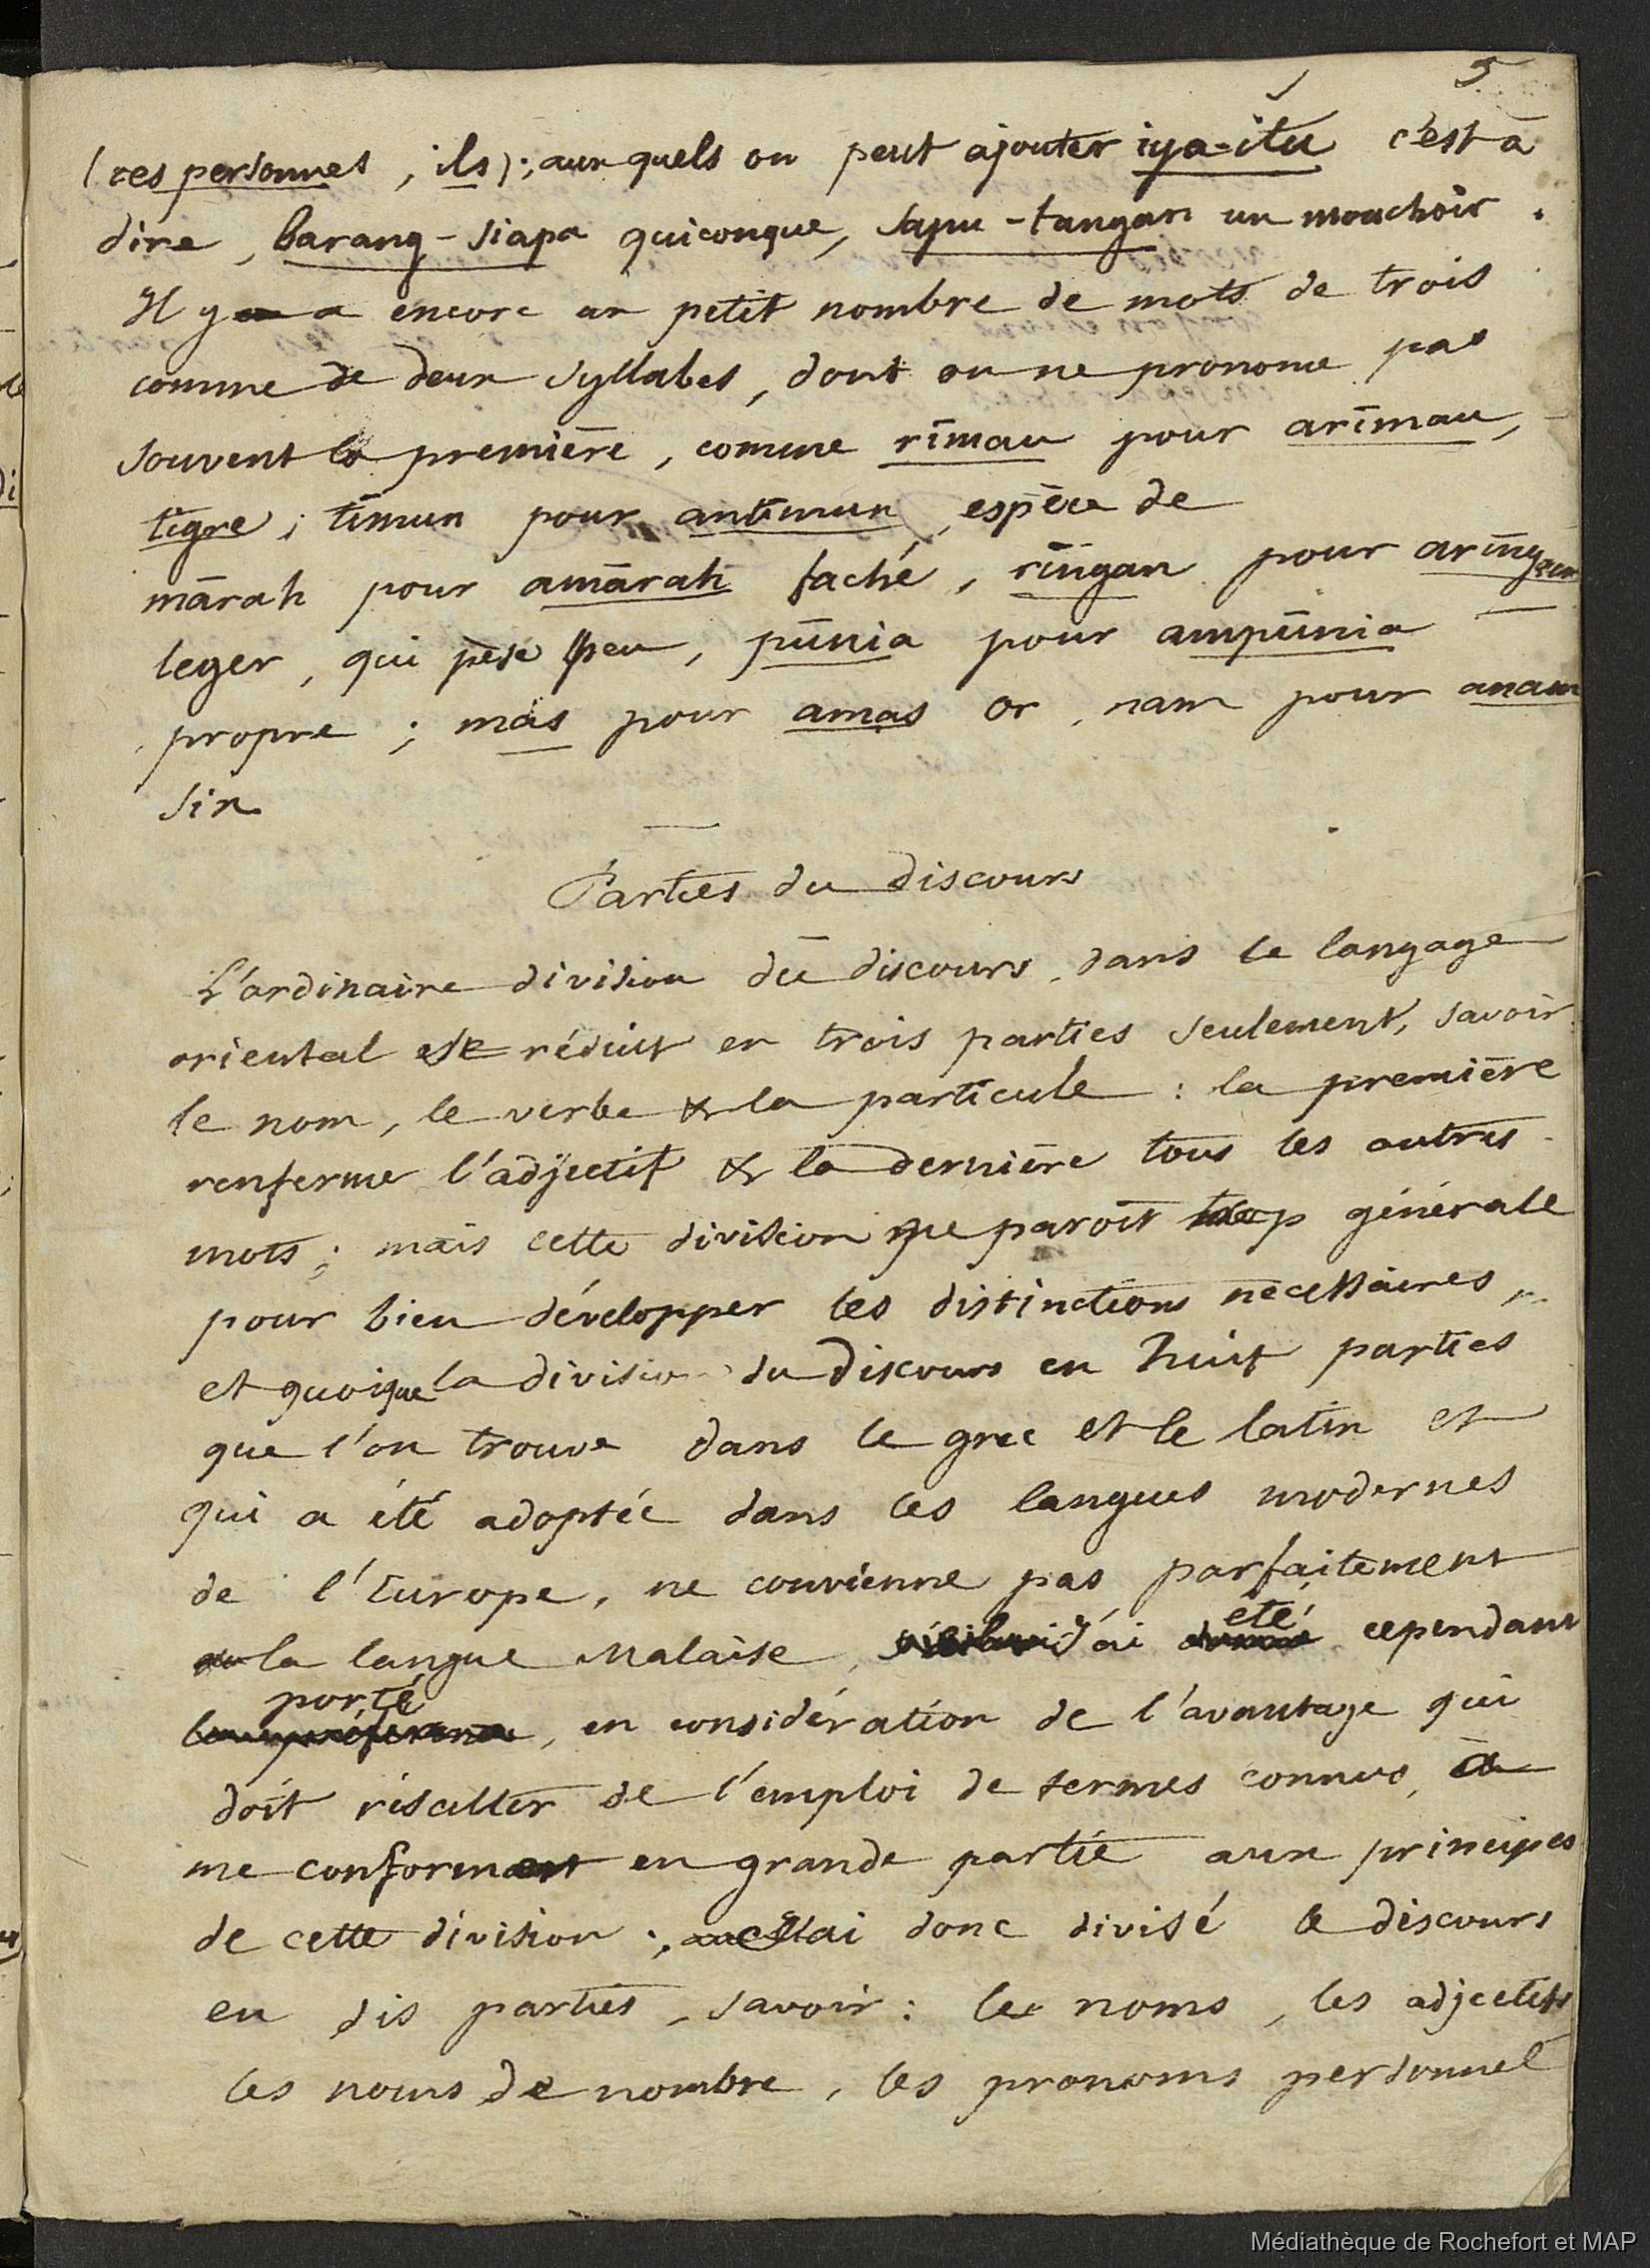 5
(ces personnes, ils); aux quels on peut ajouter iya-itu c'est à
dire, barang-siapa quiconque, sapu-tangan un mouchoir.
Il y a encore un petit nombre de mots de trois
comme de deux syllabes, dont on ne pronone pas
souvent la première, comme rīmau pour arīmau,
tigre; tīmun pour antīmun, espèce de
mārah pour amārah faché, rīngan pour arīngan
leger, qui pèse peu, pūnia pour ampūnia
propre; mas pour amas or, nam pour anam
six
Parties du discours
L'ordinaire division du discours, dans le langage
oriental se réduit en trois parties seulement, savoir
le nom, le verbe & la particule: la première
renferme l'adjectif & la dernière tous les autres
mots; mais cette division me paroît trop générale
pour bien développer les distinctions necessaires,
et quoique la division du discours en huit parties
que l'on trouve dans le grec et le latin et
qui a été adoptée dans les langues modernes
de l'Europe, ne convienne pas parfaitement
à la langue Malaise, j'ai été cependant
porté, en considération de l'avantage qui
doit résulter de l'emploi de termes connus, à
me conformer en grande partie aux principes
de cette division; j'ai donc divisé le discours
en dix parties, savoir: les noms, les adjectifs
les noms de nombre, les pronoms personnel
Médiathèque de Rochefort et MAP